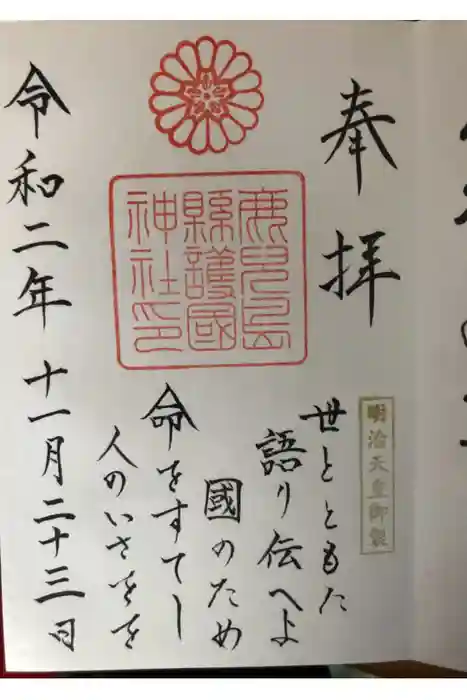 奉拝
明治天皇御製
鹿児島
縣護國
神社印
世とともた
語り伝へよ
國のため
命をすてし
人のいさをを
令和二年十一月二十三日